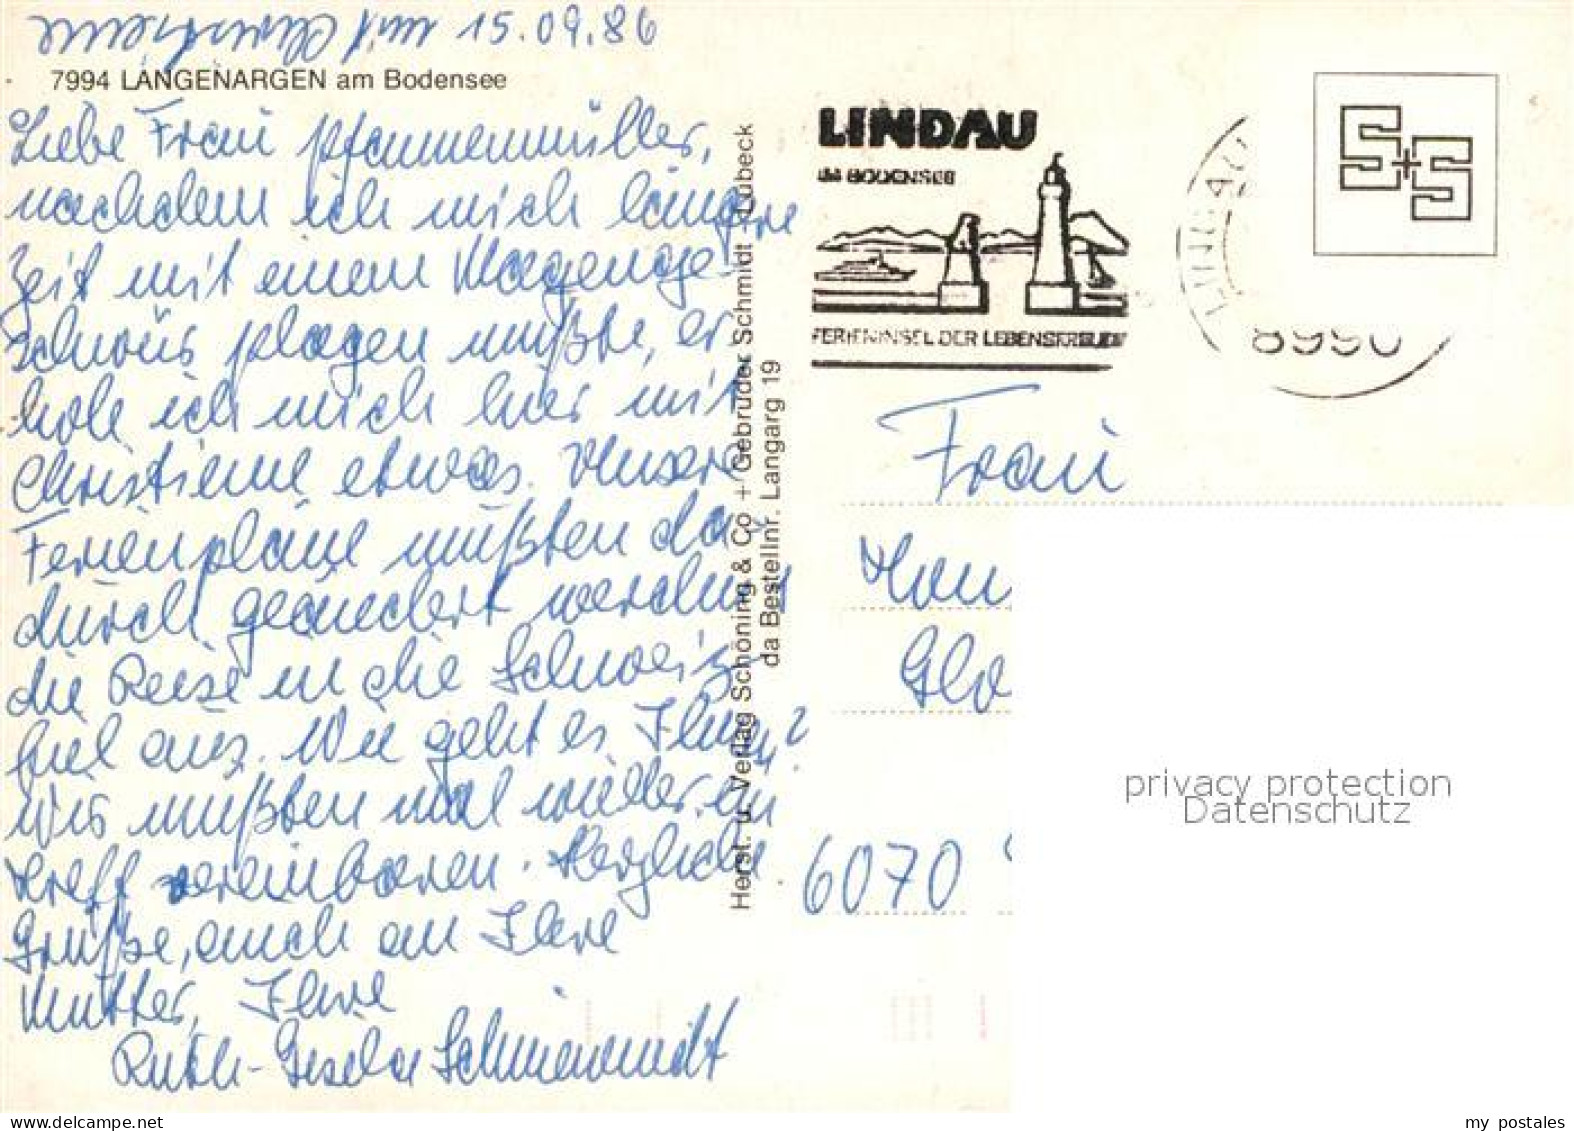 15.09.86
7994 LANGENARGEN am Bodensee
Liebe Frau Pfannenmüller,
nachdem ich mich längere
Zeit mit einem Magenge-
schwür plagen mußte, er
hole ich mich hier mit
Christiane etwas. Unsere
Ferienpläne mußten da-
durch geändert werden
die Reise in die Schweiz
fiel aus. Wie geht es Ihnen?
Wir müßten mal wieder ein
Treff vereinbaren. Herzliche
Grüße, auch an Ihre
Mutter, Ihre
Ruth-Gisela
Herst. u. Verlag Schöning & Co + Gebrüder Schmidt - Lübeck
da Bestellnr. Langarg 19
LINDAU
IM BODENSEE
FERIENINSEL DER LEBENSFREUDE
LINDAU
8990
S+S
Frau
6070
privacy protection
Datenschutz
my postales